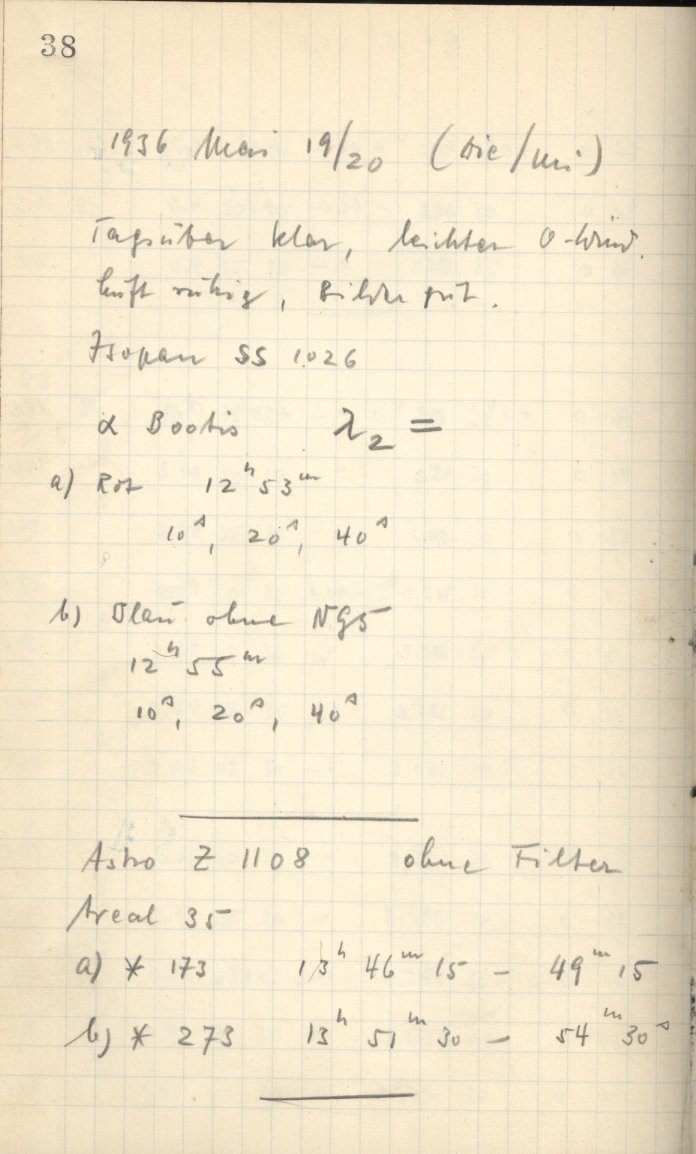 38
1936 Mai 19/20 (Die/Mi)
Tagsüber klar, leichter O-Wind.
Luft ruhig, Bilder gut.
Isopan SS 1026
α Bootis λ₂ =
a) Rot 12ʰ 53ᵐ
10ˢ, 20ˢ, 40ˢ
b) Blau ohne NG5
12ʰ 55ᵐ
10ˢ, 20ˢ, 40ˢ
Astro Z 1108 ohne Filter
Areal 35
a) * 173 13ʰ 46ᵐ 15 – 49ᵐ 15
b) * 273 13ʰ 51ᵐ 30 – 54ᵐ 30ˢ